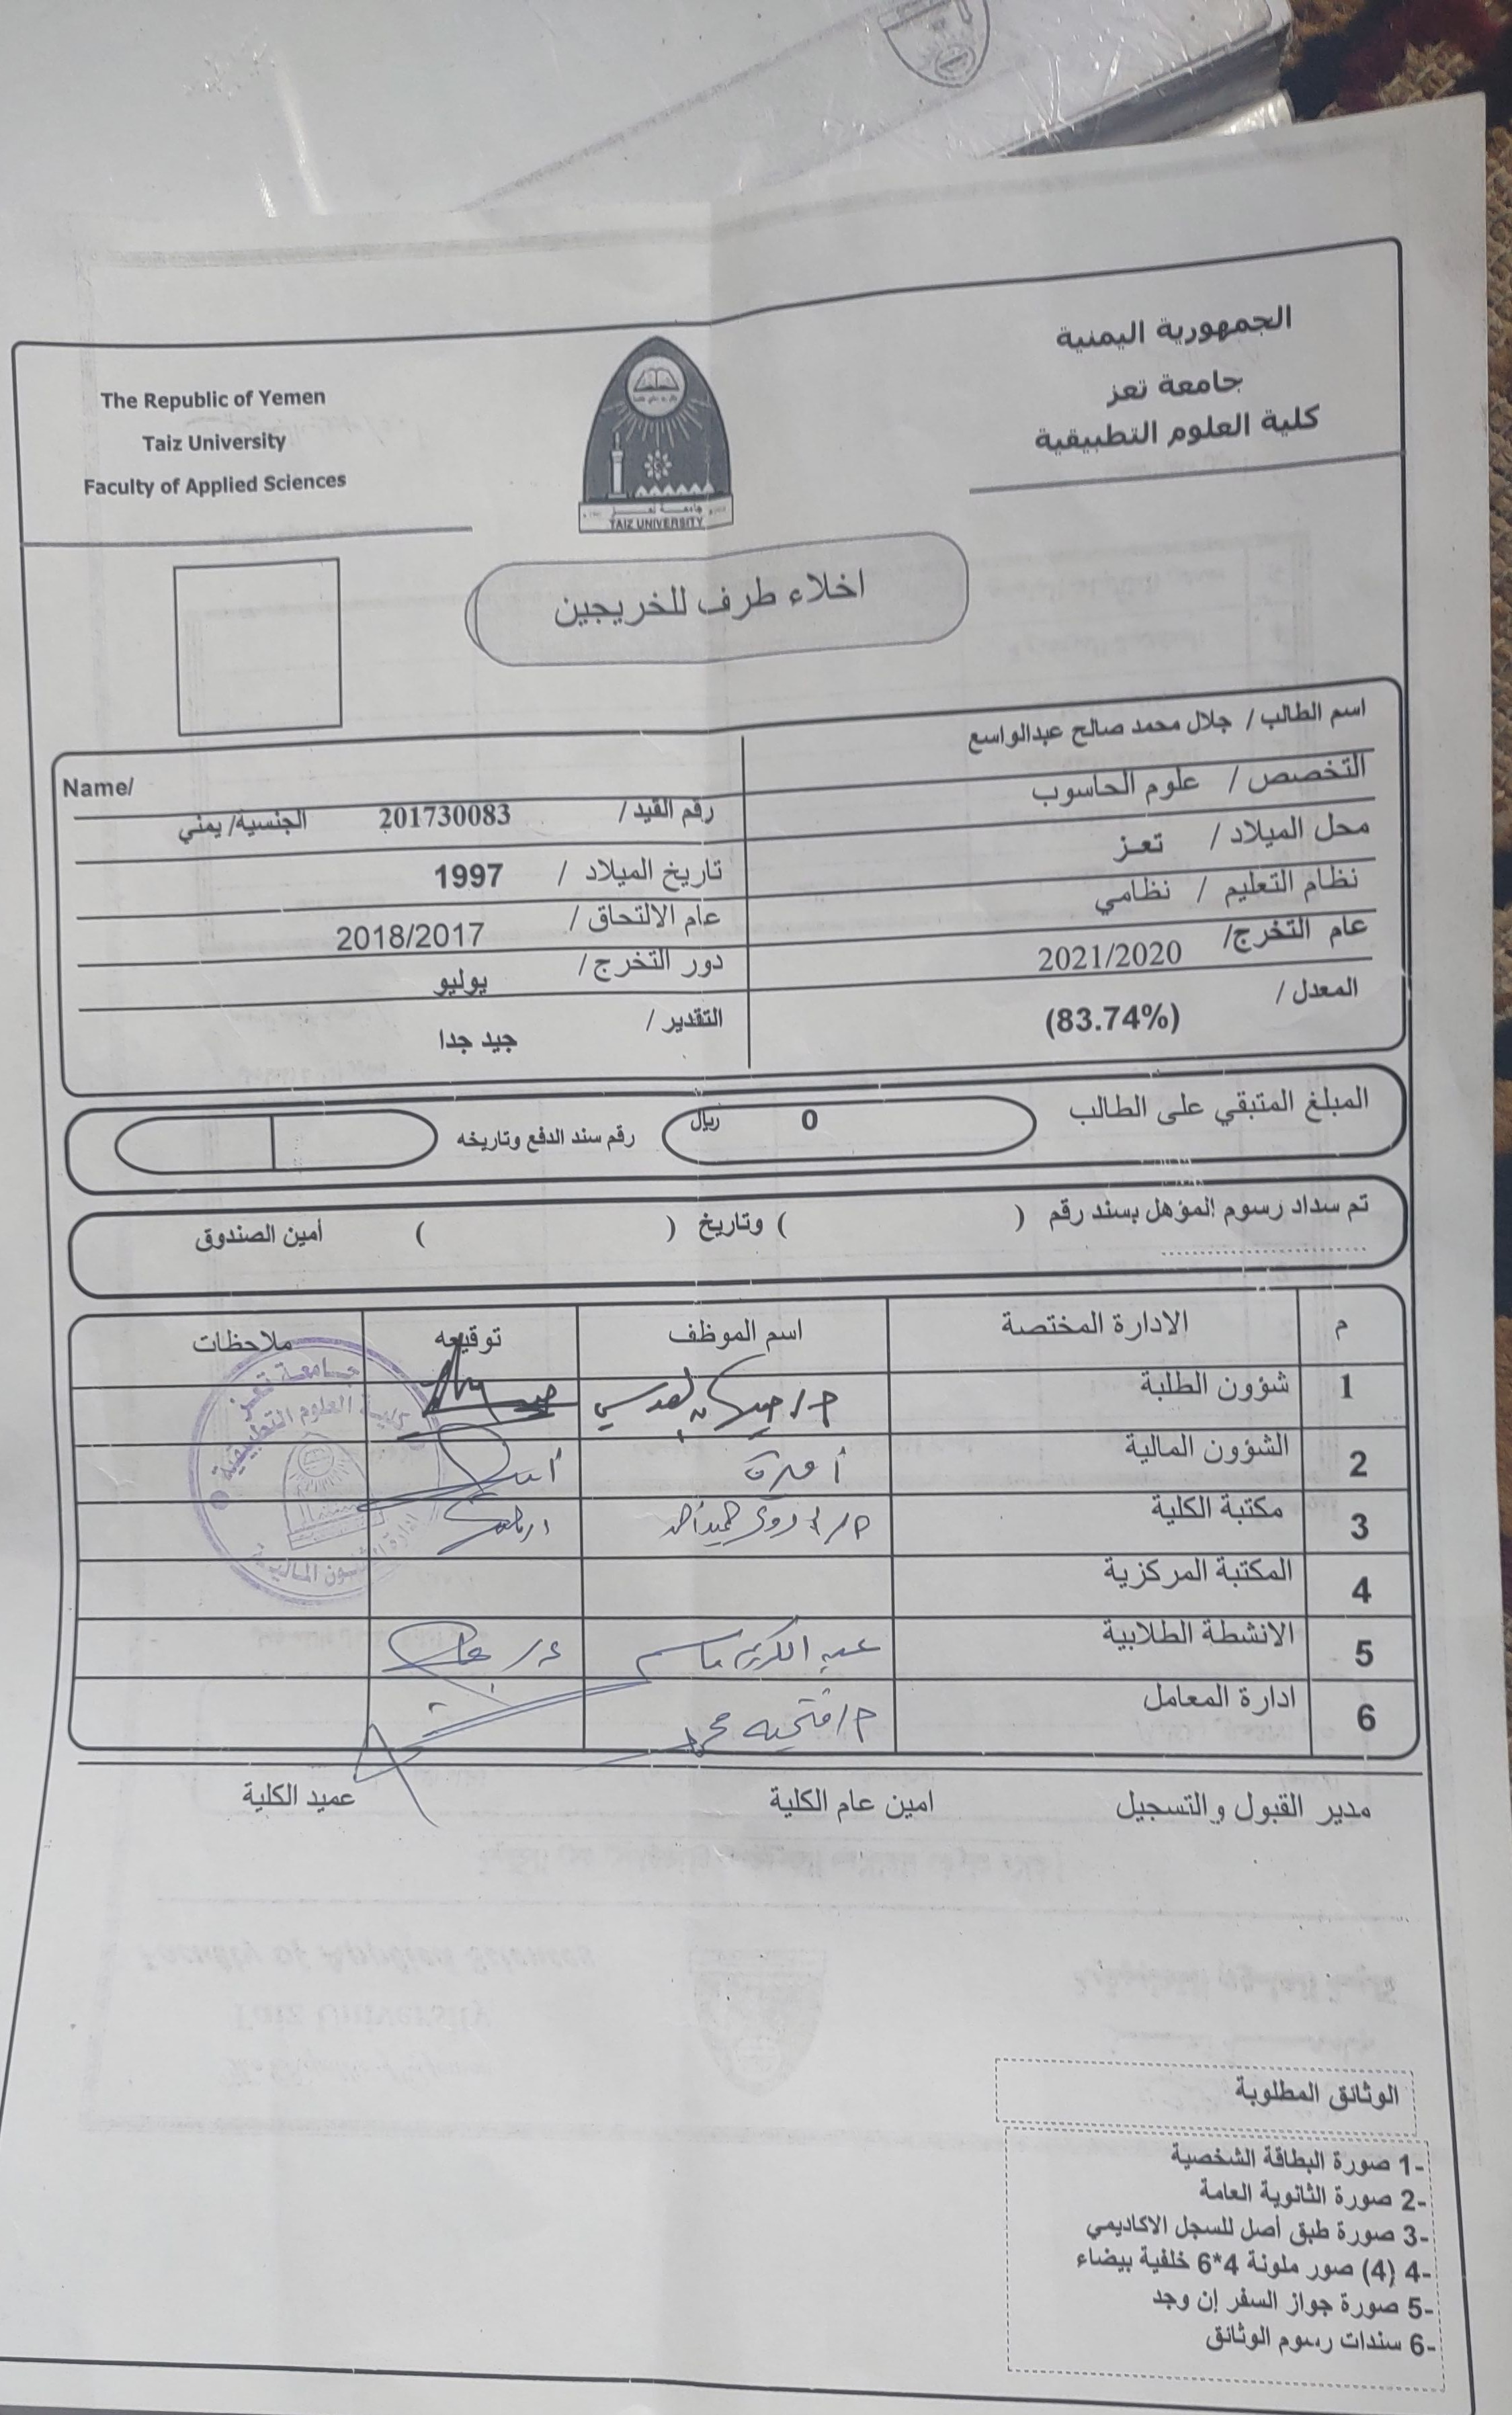 الجمهورية اليمنية
جامعة تعز
كلية العلوم التطبيقية
The Republic of Yemen
Taiz University
Faculty of Applied Sciences
جامعة تعز
TAIZ UNIVERSITY
اخلاء طرف للخريجين
اسم الطالب / جلال محمد صالح عبدالواسع
Name/
التخصص / علوم الحاسوب
رقم القيد / 201730083 الجنسية/ يمني
محل الميلاد / تعز
تاريخ الميلاد / 1997
نظام التعليم / نظامي
عام الالتحاق / 2018/2017
عام التخرج/ 2021/2020
دور التخرج / يوليو
المعدل / (83.74%)
التقدير / جيد جدا
المبلغ المتبقي على الطالب 0 ريال رقم سند الدفع وتاريخه
تم سداد رسوم المؤهل بسند رقم ( ) وتاريخ ( ) أمين الصندوق
........................
م الادارة المختصة اسم الموظف توقيعه ملاحظات
1 شؤون الطلبة
2 الشؤون المالية أميرة
3 مكتبة الكلية
4 المكتبة المركزية
5 الانشطة الطلابية عبد الكريم
6 ادارة المعامل م/ فتحيه محمد
جامعة تعز
كلية العلوم التطبيقية
ادارة الشئون المالية
مدير القبول والتسجيل امين عام الكلية عميد الكلية
الوثائق المطلوبة
1- صورة البطاقة الشخصية
2- صورة الثانوية العامة
3- صورة طبق أصل للسجل الاكاديمي
4- (4) صور ملونة 4*6 خلفية بيضاء
5- صورة جواز السفر إن وجد
6- سندات رسوم الوثائق